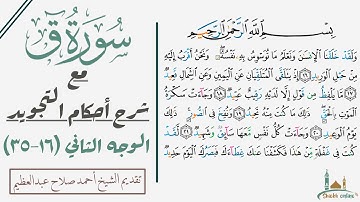 سورة ق
مع
شرح أحكام التجويد
الوجه الثاني (١٦-٣٥)
تقديم الشيخ أحمد صلاح عبدالعظيم
بِسْمِ اللَّهِ الرَّحْمَٰنِ الرَّحِيمِ
وَلَقَدْ خَلَقْنَا الْإِنسَانَ وَنَعْلَمُ مَا تُوَسْوِسُ بِهِ نَفْسُهُ وَنَحْنُ أَقْرَبُ إِلَيْهِ
مِنْ حَبْلِ الْوَرِيدِ ﴿١٦﴾ إِذْ يَتَلَقَّى الْمُتَلَقِّيَانِ عَنِ الْيَمِينِ وَعَنِ الشِّمَالِ قَعِيدٌ
﴿١٧﴾ مَّا يَلْفِظُ مِن قَوْلٍ إِلَّا لَدَيْهِ رَقِيبٌ عَتِيدٌ ﴿١٨﴾ وَجَاءَتْ سَكْرَةُ
الْمَوْتِ بِالْحَقِّ ذَٰلِكَ مَا كُنتَ مِنْهُ تَحِيدُ ﴿١٩﴾ وَنُفِخَ فِي الصُّورِ ذَٰلِكَ
يَوْمُ الْوَعِيدِ ﴿٢٠﴾ وَجَاءَتْ كُلُّ نَفْسٍ مَّعَهَا سَائِقٌ وَشَهِيدٌ ﴿٢١﴾ لَّقَدْ
كُنتَ فِي غَفْلَةٍ مِّنْ هَٰذَا فَكَشَفْنَا عَنكَ غِطَاءَكَ فَبَصَرُكَ الْيَوْمَ حَدِيدٌ
Sheikh online